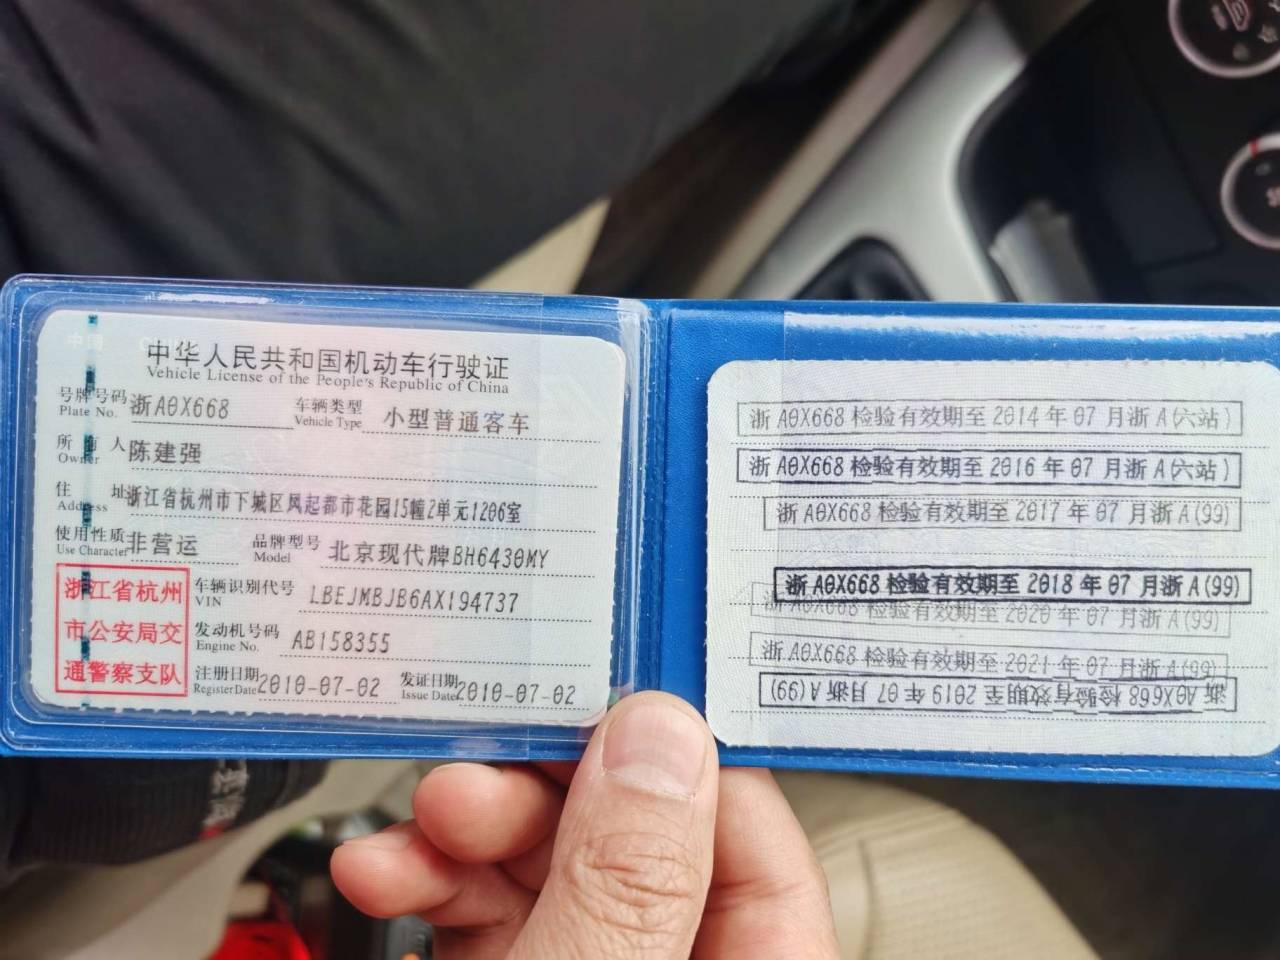 中华人民共和国机动车行驶证
Vehicle License of the People's Republic of China
号牌号码 浙A0X668 车辆类型 小型普通客车
Plate No. Vehicle Type
所有人 陈建强
Owner
住址 浙江省杭州市下城区风起都市花园15幢2单元1206室
Address
使用性质 非营运 品牌型号 北京现代牌BH6430MY
Use Character Model
浙江省杭州
市公安局交
通警察支队
车辆识别代号 LBEJMBJB6AX194737
VIN
发动机号码 AB158355
Engine No.
注册日期 2010-07-02 发证日期 2010-07-02
Register Date Issue Date
浙A0X668检验有效期至2014年07月浙A(六站)
浙A0X668检验有效期至2016年07月浙A(六站)
浙A0X668检验有效期至2017年07月浙A(99)
浙A0X668检验有效期至2018年07月浙A(99)
浙A0X668检验有效期至2020年07月浙A(99)
浙A0X668检验有效期至2021年07月浙A(99)
浙A0X668检验有效期至2019年07月浙A(99)